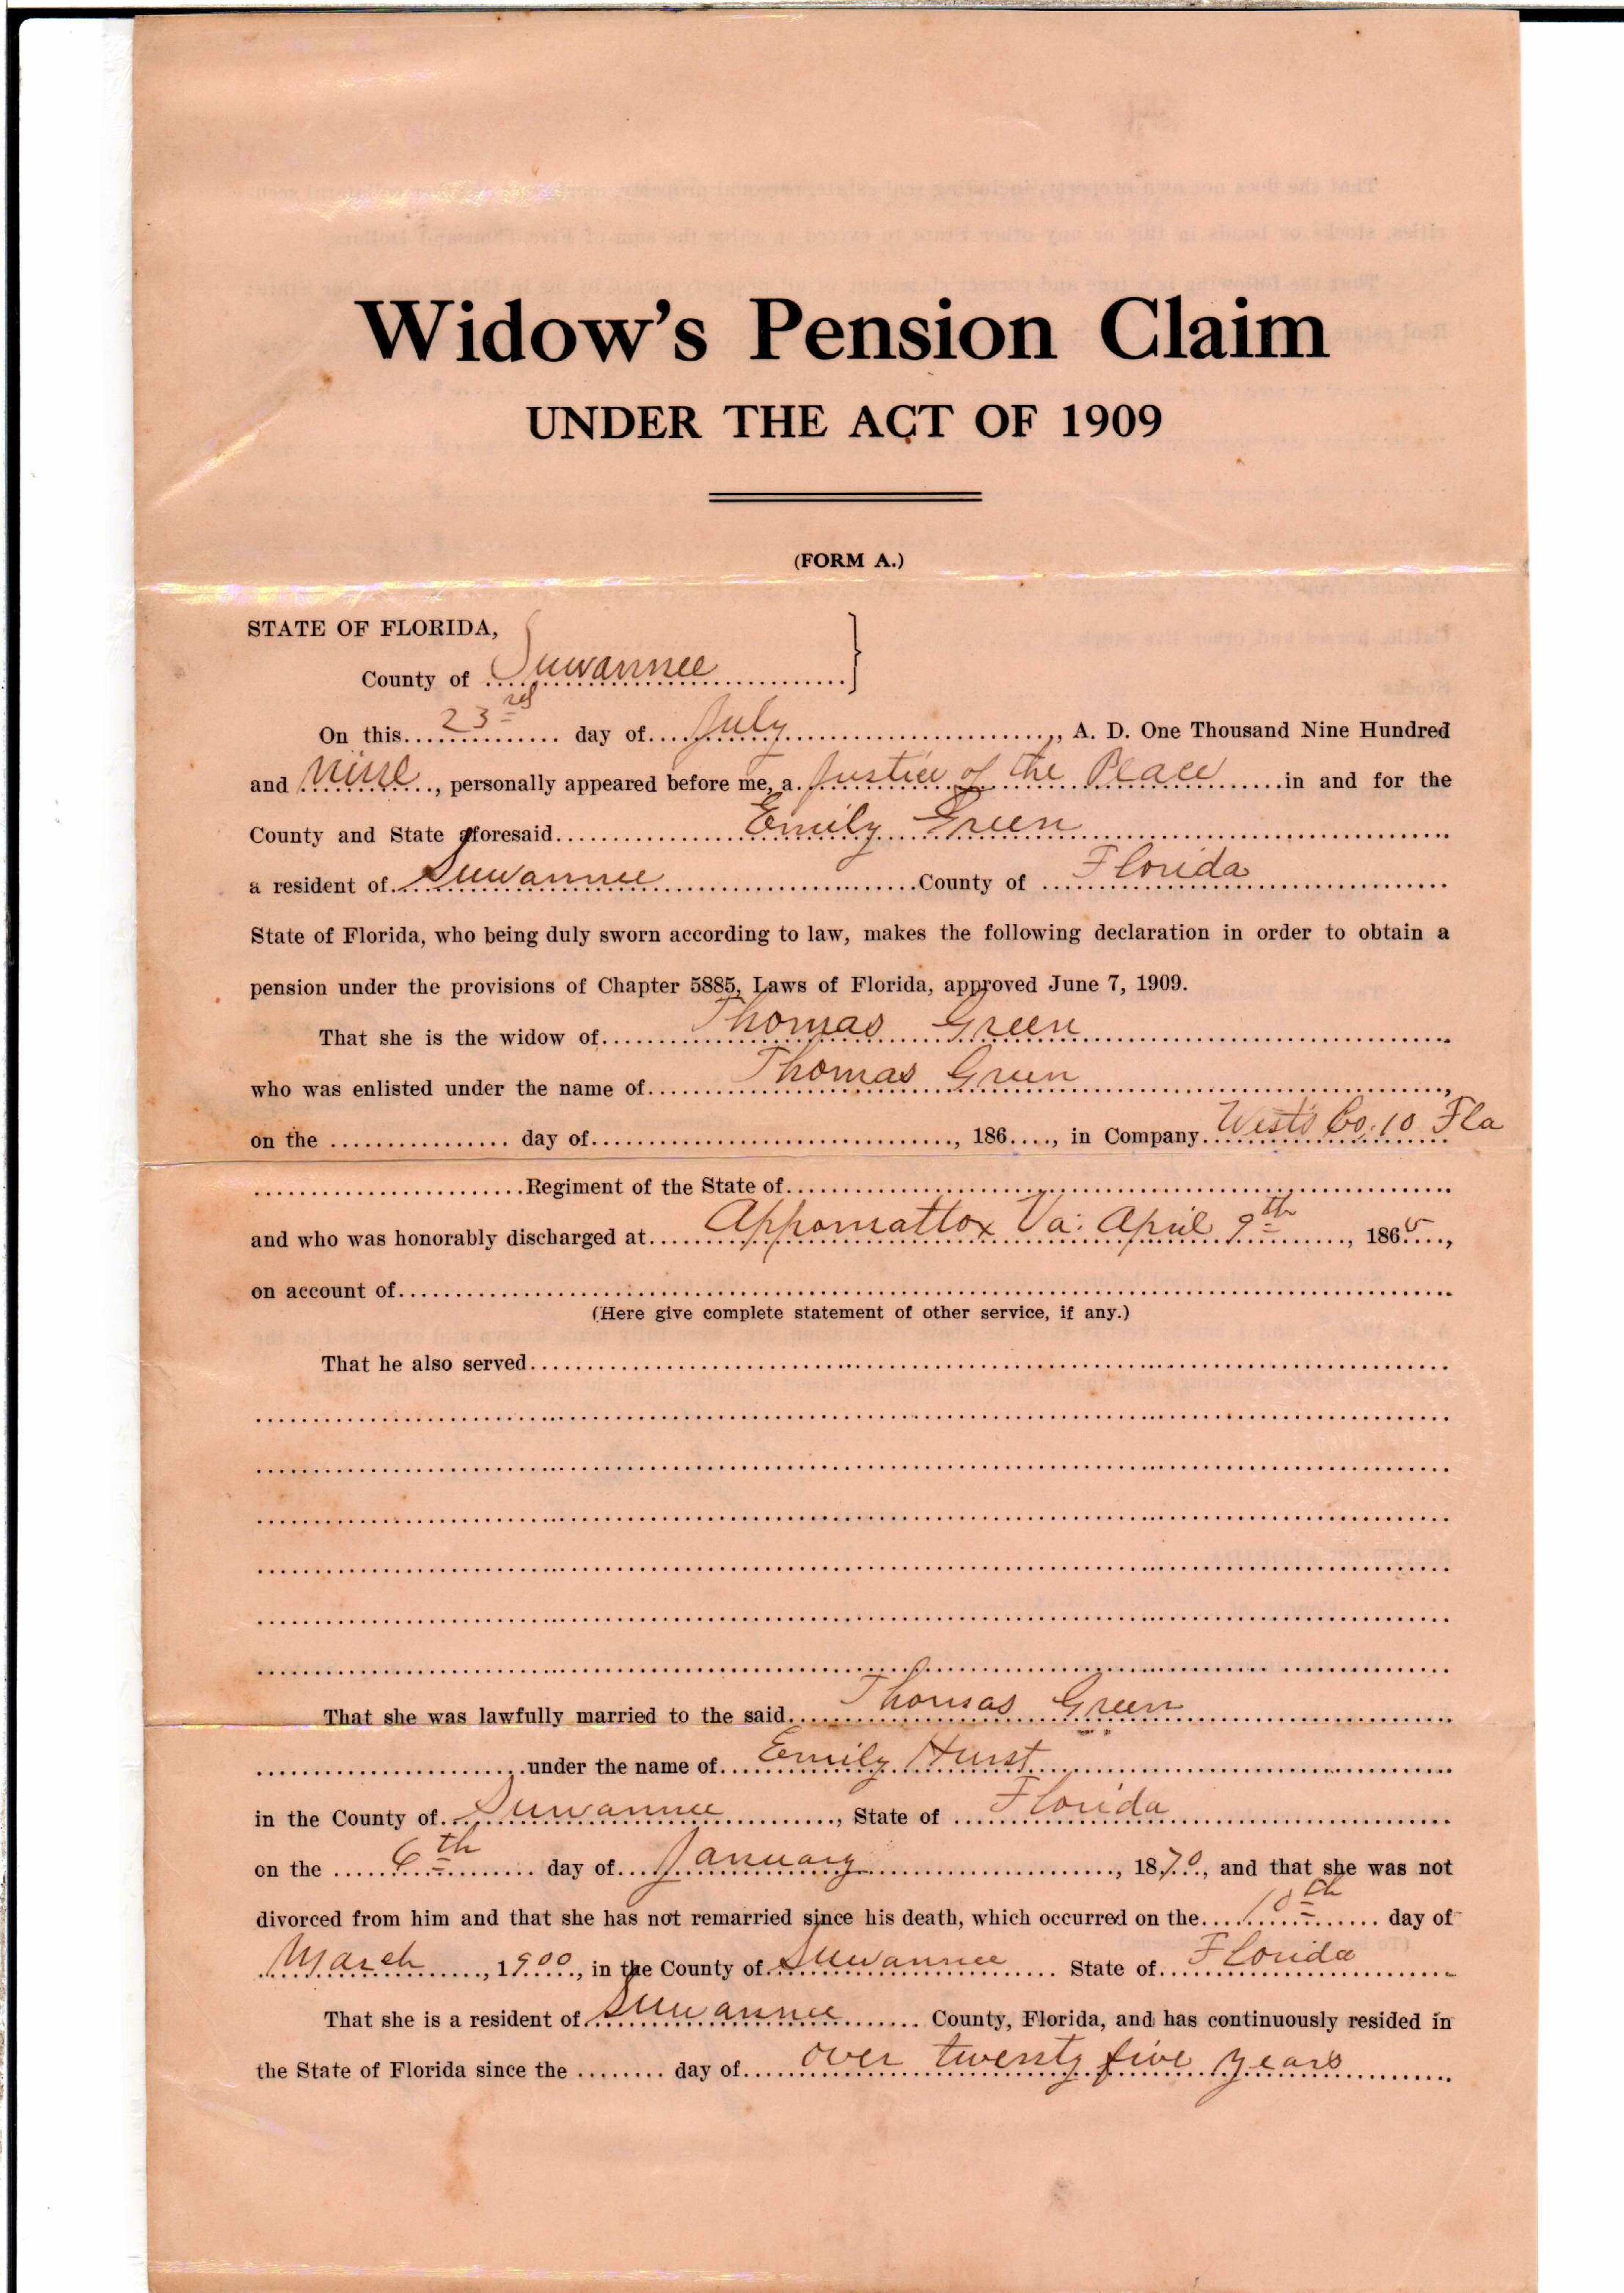 Widow's Pension Claim
UNDER THE ACT OF 1909
(FORM A.)
STATE OF FLORIDA,
County of Suwannee
On this 23rd day of July, A. D. One Thousand Nine Hundred
and Nine, personally appeared before me, a Justice of the Peace in and for the
County and State aforesaid Emily Green
a resident of Suwannee County of Florida
State of Florida, who being duly sworn according to law, makes the following declaration in order to obtain a
pension under the provisions of Chapter 5885, Laws of Florida, approved June 7, 1909.
That she is the widow of Thomas Green
who was enlisted under the name of Thomas Green,
on the ................ day of ................, 186...., in Company West's Co. 10 Fla
................ Regiment of the State of ................
and who was honorably discharged at Appomattox Va: April 9th, 1865,
on account of ................
(Here give complete statement of other service, if any.)
That he also served ................
That she was lawfully married to the said Thomas Green
................ under the name of Emily Hurst
in the County of Suwannee, State of Florida
on the 6th day of January, 1870, and that she was not
divorced from him and that she has not remarried since his death, which occurred on the 10th day of
March, 1900, in the County of Suwannee State of Florida
That she is a resident of Suwannee County, Florida, and has continuously resided in
the State of Florida since the ........ day of over twenty five years